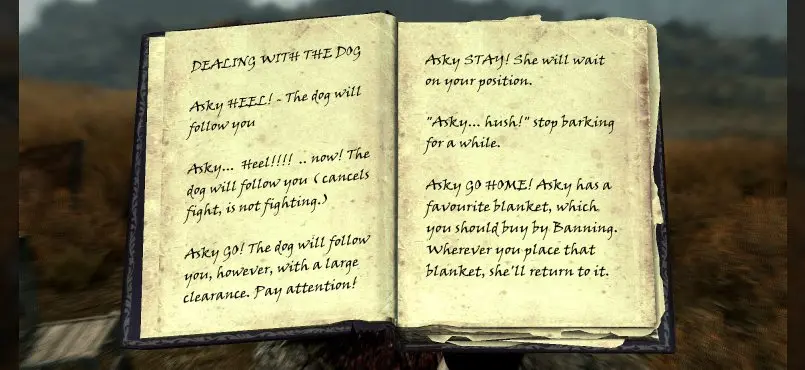 DEALING WITH THE DOG
Asky HEEL! - The dog will
follow you
Asky... Heel!!!! .. now! The
dog will follow you ( cancels
fight, is not fighting.)
Asky GO! The dog will follow
you, however, with a large
clearance. Pay attention!
Asky STAY! She will wait
on your position.
"Asky... hush!" stop barking
for a while.
Asky GO HOME! Asky has a
favourite blanket, which
you should buy by Banning.
Wherever you place that
blanket, she'll return to it.